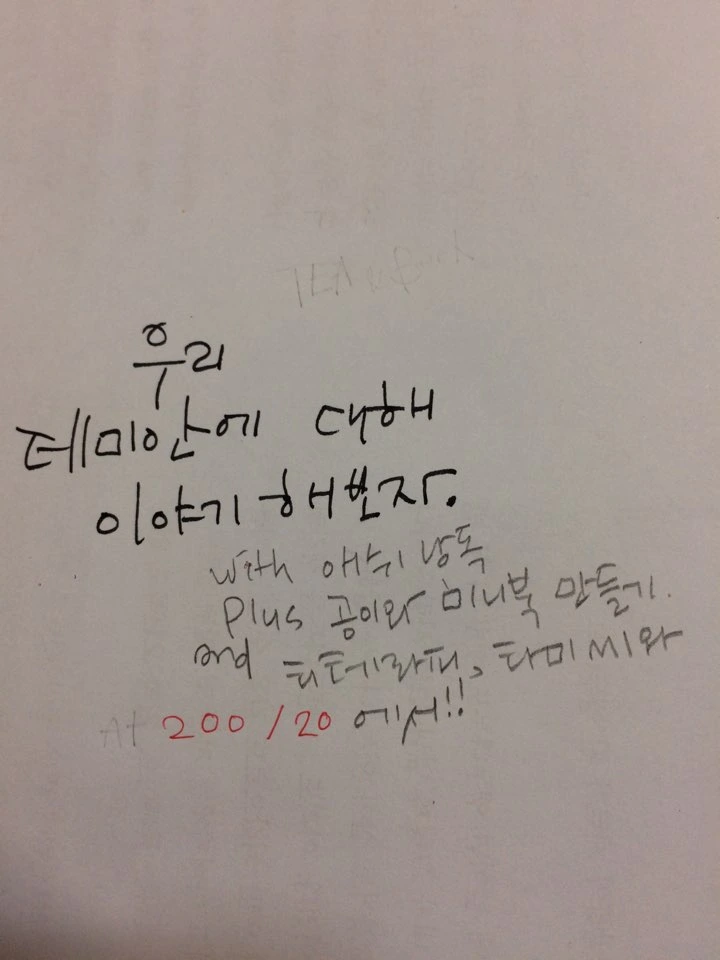 우리
데미안에 대해
이야기 해보자.
with 애쉬 낭독
Plus 공이와 미니북 만들기.
and 티테라피, 타미씨와
At 200/20 에서!!